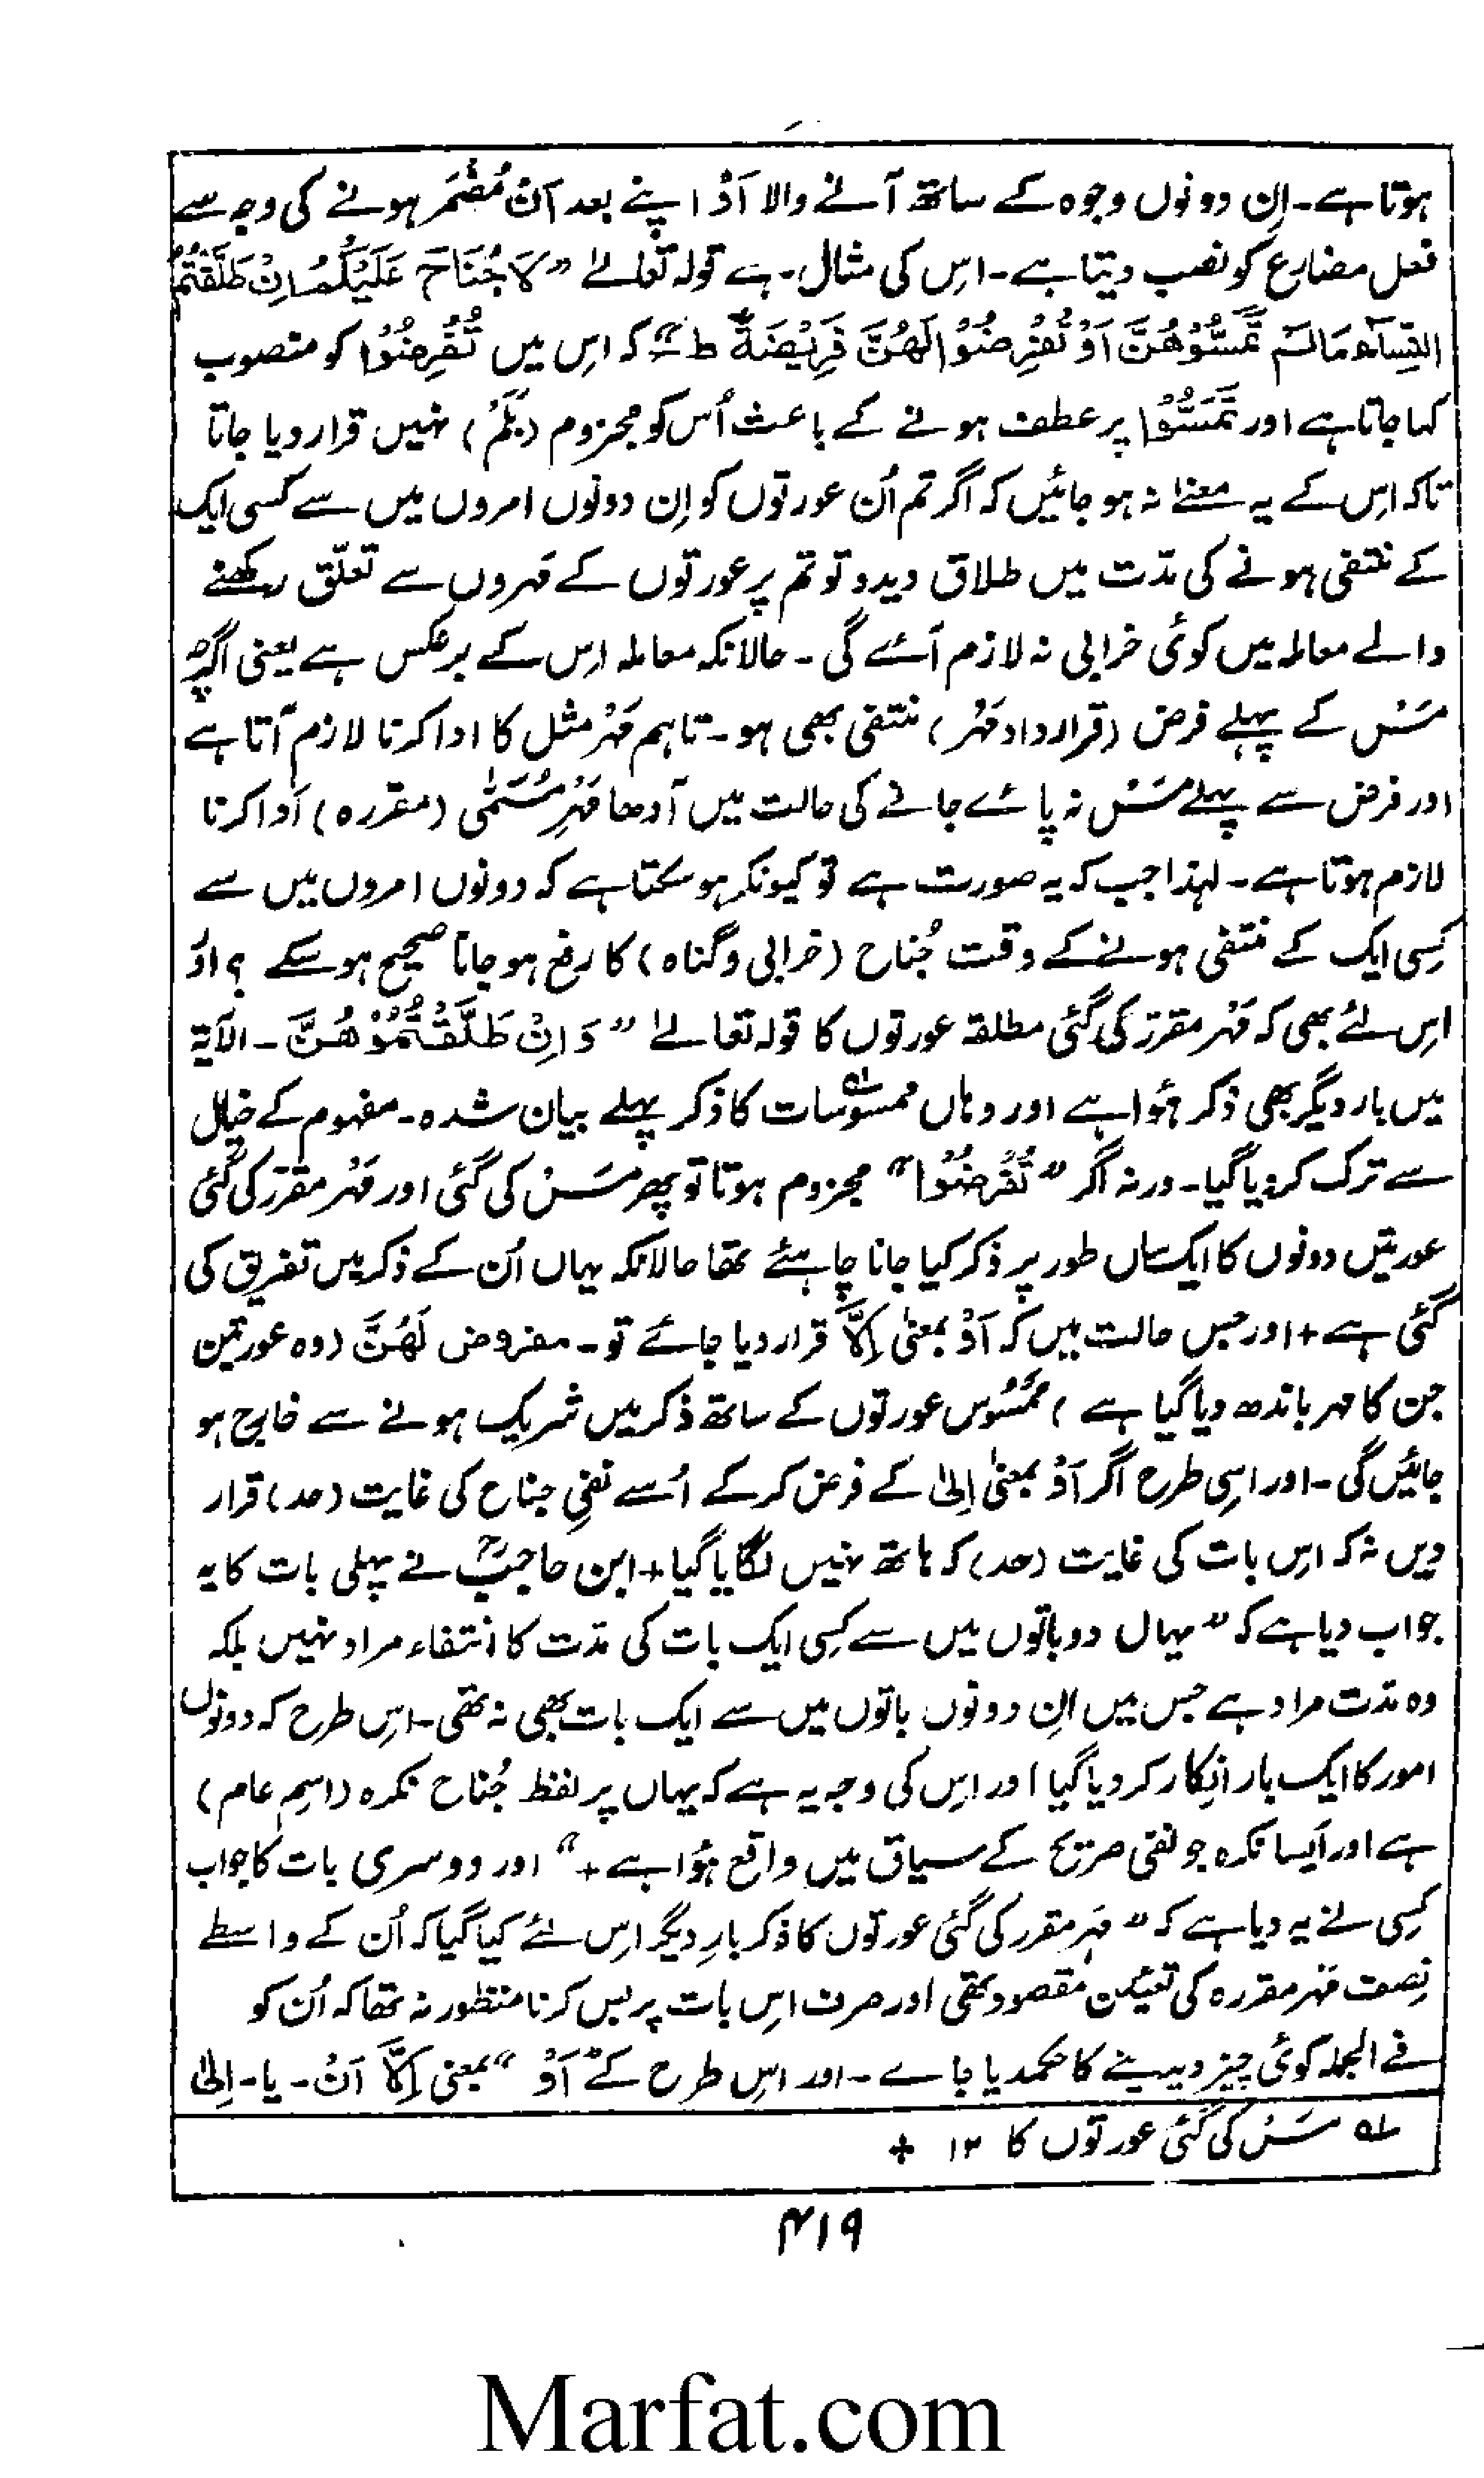 ہوتا ہے۔ اِن دونوں وجوہ کے ساتھ آنے والا اَوْ اپنے بعد اَنْ مُضْمَر ہونے کی وجہ سے
فعل مضارع کو نصب دیتا ہے۔ اس کی مثال۔ ہے قولہ تعالےٰ ”لَا جُنَاحَ عَلَيْكُمْ اِنْ طَلَّقْتُمُ
النِّسَآءَ مَا لَمْ تَمَسُّوْهُنَّ اَوْ تَفْرِضُوْا لَهُنَّ فَرِيْضَةً ط“ کہ اِس میں تَفْرِضُوْا کو منصوب
کہا جاتا ہے اور تَمَسُّوْا پر عطف ہونے کے باعث اُس کو مجزوم (بَلَمْ) نہیں قرار دیا جاتا
تاکہ اِس کے یہ معنےٰ نہ ہو جائیں کہ اگر تم اُن عورتوں کو اِن دونوں امروں میں سے کسی ایک
کے منتفی ہونے کی مدّت میں طلاق دیدو تو تم پر عورتوں کے مَہروں سے تعلّق رکھنے
والے معاملہ میں کوئی خرابی نہ لازم آئے گی۔ حالانکہ معاملہ اِس کے برعکس ہے یعنی اگرچہ
مَسْں کے پہلے فرض (قرارداد مَہْر) منتفی بھی ہو۔ تاہم مَہْر مثل کا ادا کرنا لازم آتا ہے
اور فرض سے پہلے مَسْں نہ پائے جانے کی حالت میں آدھا مَہْرِ مُسَمّٰی (مقررہ) اَدا کرنا
لازم ہوتا ہے۔ لہٰذا جب کہ یہ صورت ہے تو کیونکر ہو سکتا ہے کہ دونوں امروں میں سے
کِسی ایک کے منتفی ہونے کے وقت جُناح (خرابی و گناہ) کا رفع ہو جانا صحیح ہو سکے ؟ اوُ
اِس لئے بھی کہ مَہْر مقرّر کی گئی مطلقہ عورتوں کا قولہ تعالےٰ ”وَاِنْ طَلَّقْتُمُوْهُنَّ۔ الآیۃ
میں بار دیگر بھی ذکر ہُوا ہے اور وہاں ممسُوسات کا ذکر پہلے بیان شدہ۔ مفہوم کے خیال
سے ترک کر دیا گیا۔ ورنہ اگر ”تَفْرِضُوْا“ مجزوم ہوتا تو پھر مَسْں کی گئی اور مَہْر مقرّر کی گئی
عورتیں دونوں کا ایکساں طور پر ذکر کیا جانا چاہئے تھا حالانکہ یہاں اُن کے ذکر میں تفریق کی
گئی ہے + اور جس حالت میں کہ اَوْ بمعنیٰ اِلَّا قرار دیا جائے تو۔ مفروض لَهُنَّ (وہ عورتین
جن کا مہر باندھ دیا گیا ہے) ممْسُوس عورتوں کے ساتھ ذکر میں شریک ہونے سے خارج ہو
جائیں گی۔ اور اسی طرح اگر اَوْ بمعنیٰ اِلیٰ کے فرض کر کے اُسے نفیِ جناح کی غایت (حد) قرار
دیں نہ کہ اِس بات کی غایت (حد) کہ ہاتھ نہیں لگایا گیا + ابن حاجبؒ نے پہلی بات کا یہ
جواب دیا ہے کہ ”یہاں دو باتوں میں سے کِسی ایک بات کی مدّت کا اِنتفاء مراد نہیں بلکہ
وہ مدّت مراد ہے جس میں اِن دونوں باتوں میں سے ایک بات بھی نہ تھی۔ اِس طرح کہ دونوں
امور کا ایک بار اِنکار کر دیا گیا اور اِس کی وجہ یہ ہے کہ یہاں پر لفظ جُناح نکرہ (اسمِ عام)
ہے اور اَیسا نکرہ جو نفی صریح کے سیاق میں واقع ہُوا ہے +“ اور دوسری بات کا جواب
کِسی نے یہ دیا ہے کہ ”مَہر مقرر کی گئی عورتوں کا ذکر بارِ دیگر اِس لئے کیا گیا کہ اُن کے واسطے
نِصف مَہر مقررہ کی تعیین مقصود تھی اور صرف اِس بات پر بس کرنا منظور نہ تھا کہ اُن کو
فے الجملہ کوئی چیز دیدینے کا حکم دیا جاے۔ اور اِس طرح کے ”اَوْ“ بمعنی اِلَّا اَنْ۔ یا۔ اِلیٰ
لہ مَسْں کی گئی عورتوں کا ۱۲ +
۴۱۹
Marfat.com